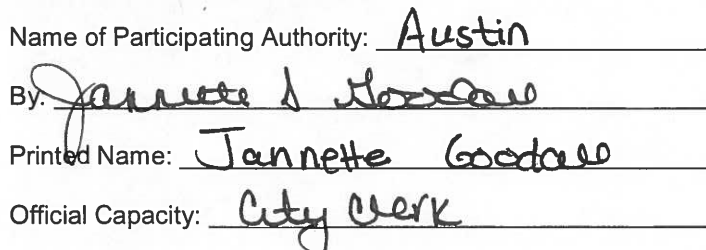 Name of Participating Authority: Austin
By: Jannette S Goodall
Printed Name: Jannette Goodall
Official Capacity: City Clerk